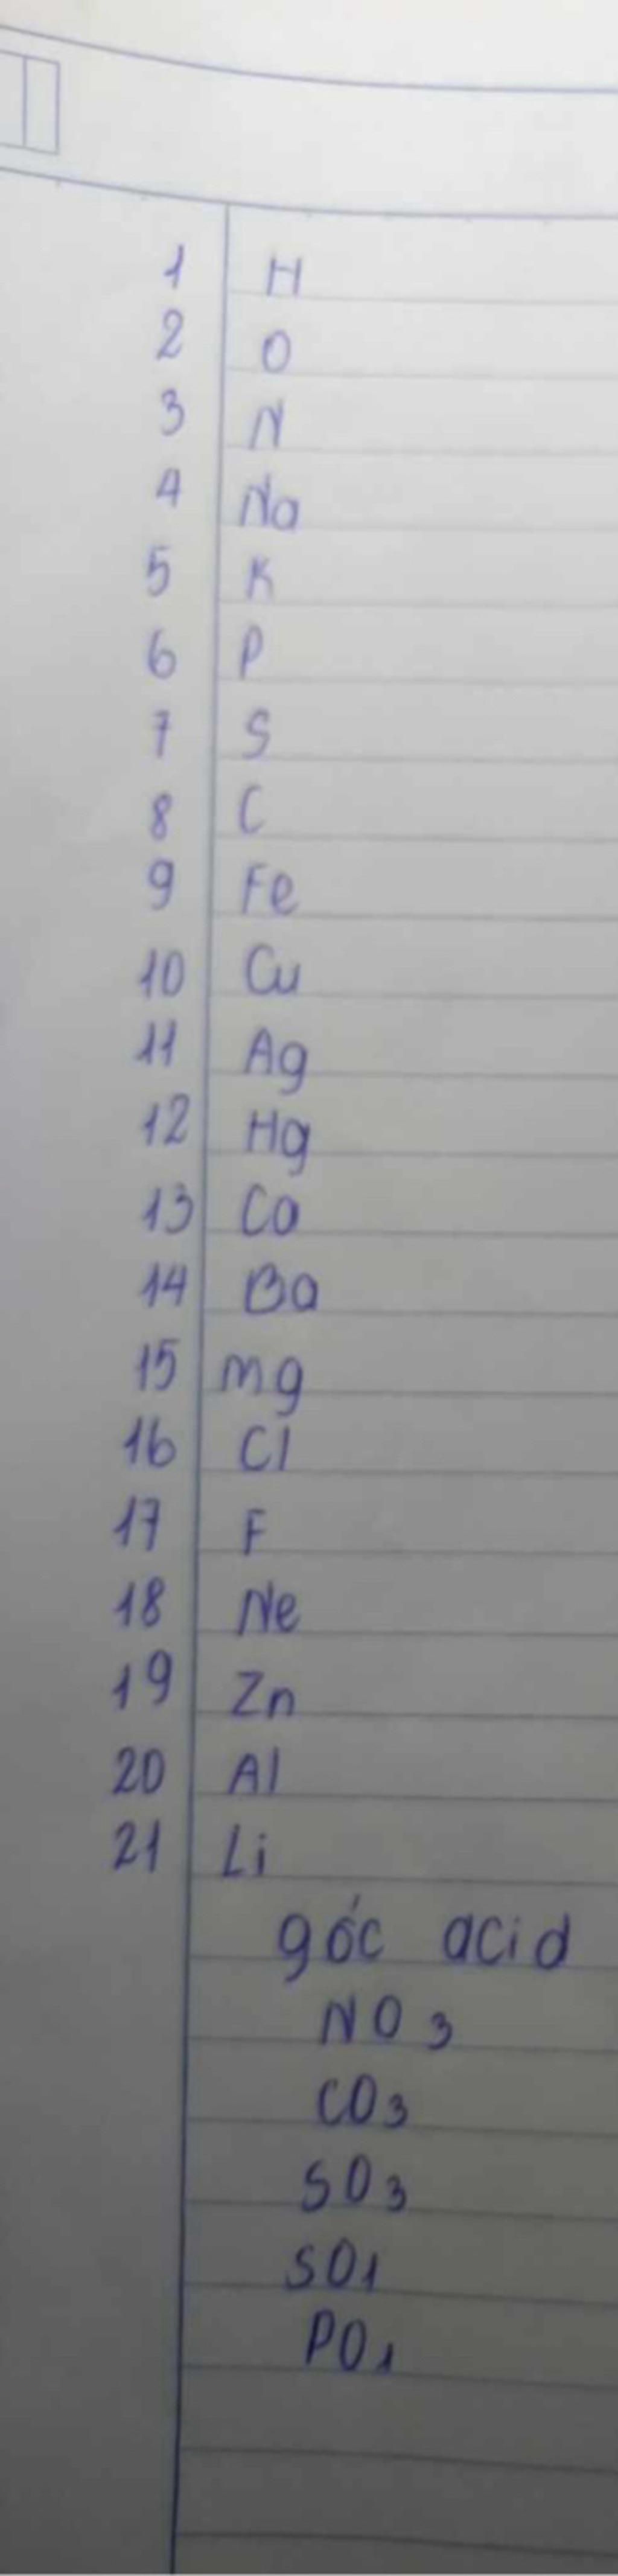 1 H
2 O
3 N
4 Na
5 K
6 P
7 S
8 C
9 Fe
10 Cu
11 Ag
12 Hg
13 Ca
14 Ba
15 mg
16 Cl
17 F
18 Ne
19 Zn
20 Al
21 Li
góc acid
NO3
CO3
SO3
SO1
PO1